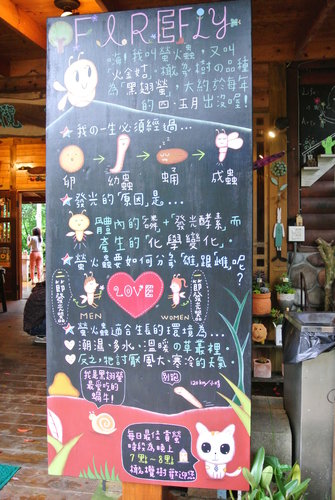 FIREFLY
嗨!我叫螢火蟲,又叫
"火金姑",橄欖樹の品種
為"黑翅螢",大約於每年
的四、五月出沒喔!
我の一生必須經過...
卵 幼蟲 蛹 成蟲
發光的"原因"是...
體內的"磷"+"發光酵素"而
產生的"化學變化"。
螢火蟲要如何分辨"雄"跟"雌"呢?
LOVE
MEN
WOMEN
螢火蟲適合生長的環境為...
潮濕、多水、溫暖の草叢裡。
反之,牠討厭風大、寒冷的天氣
我是黑翅螢
最愛吃的
蝸牛!
別跑
每日最佳賞螢
時段為晚上
7點~8點
橄欖樹歡迎您